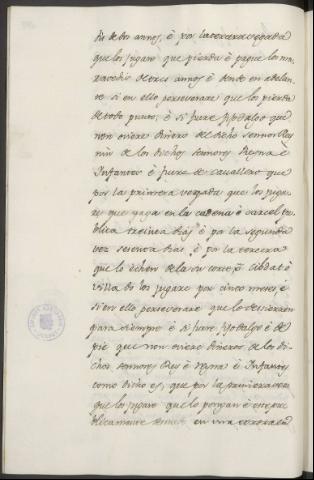 dic de dos annos, è por la tercera vegada
que los jugare que pierda è pague los ma
ravedis de tres annos è dende en adelan
te si en ello perseverare que los pierda
de todo punto, è si fuere fijodalgo que
non oviere dineros del dicho sennor Rey
nin de los dichos sennores Reyna è
Infantes è fuere de cavallero que
por la primera vegada que los juga
re que yaga en la cadena ò carcel pu
blica treinta dias, è por la segunda
vez sesenta dias, è por la tercera
que lo echen de la su corte ò Cibdat ò
villa do los jugare por cinco meses, è
si en ello perseverare que lo destierren
para siempre è si fuere fijodalgo è de
pie que non oviere dineros de los di
chos sennores Rey è Reyna è Infantes
como dicho es, que por la primera vez
que los jugare que lo pongan è este pu
blicamente en una